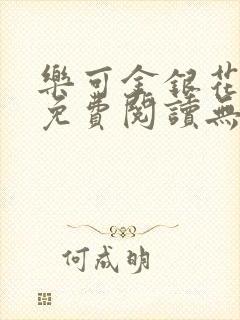 樂可金銀花
免費閱讀無
何成明